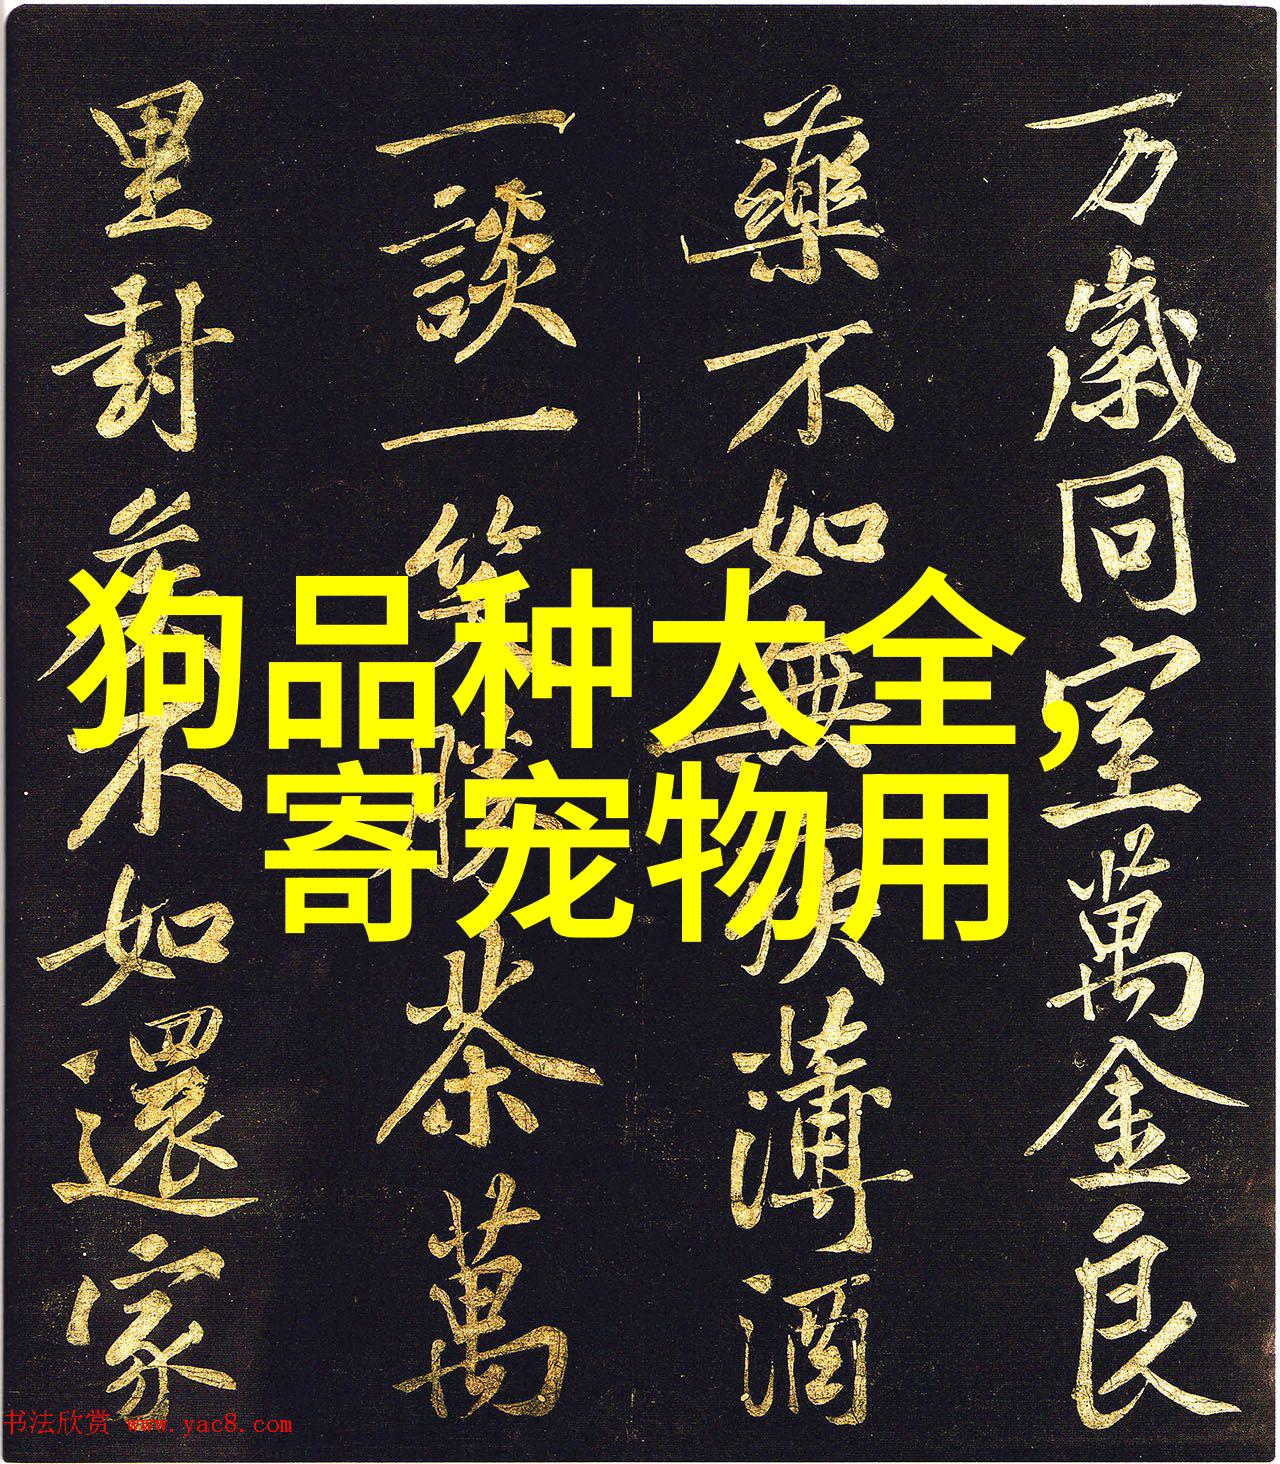 狗品种大全,
寄宠物用
万歲同室萬金良
藥不如無疾薄酒
一談一笑勝茶萬
里封矦不如還家
书法欣赏 www.yac8.com